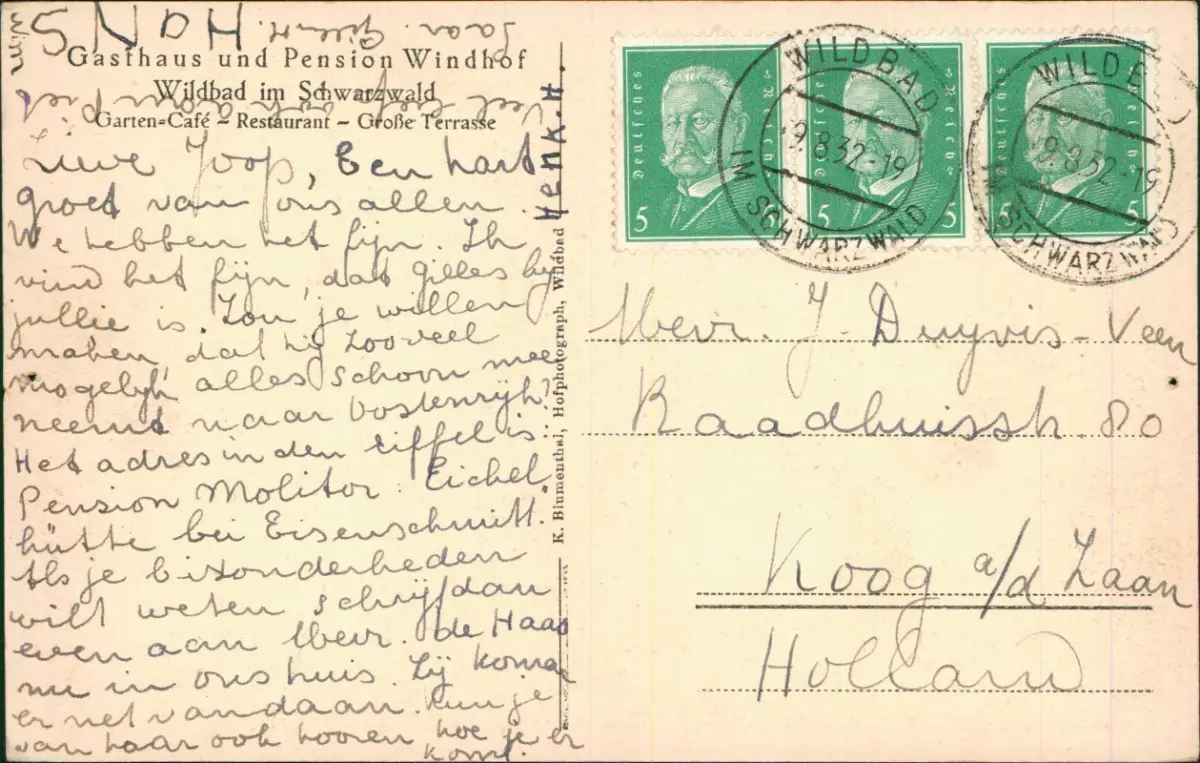 Gasthaus und Pension Windhof
Wildbad im Schwarzwald
Garten-Café – Restaurant – Große Terrasse
Lieve Joop, Een hart
groet van ons allen.
We hebben het fijn. Ik
vind het fijn, dat Gilles bij
jullie is. Zou je willen
maken, dat hij zooveel
mogelijk alles schoon mee
neemt naar Oostenrijk?
Het adres in den Eiffel is:
Pension Molitor. Eichel
hütte bei Eisenschmitt.
Als je bizonderheden
wilt weten schrijf dan
even aan Mevr. de Haas
nu in ons huis. Zij komt
er net vandaan. Kun je
van haar ook hooren hoe je er
komt.
Henk.H.
K. Blumenthal, Hofphotograph, Wildbad
Deutsches Reich
5
Deutsches Reich
5 5
Reich
5 5
WILDBAD
9.8.32-19
IM SCHWARZWALD
WILDB
9.8.32-19
IM SCHWARZWALD
Mevr. J. Duyvis-Veen
Raadhuisstr. 80
Koog a/d Zaan
Holland